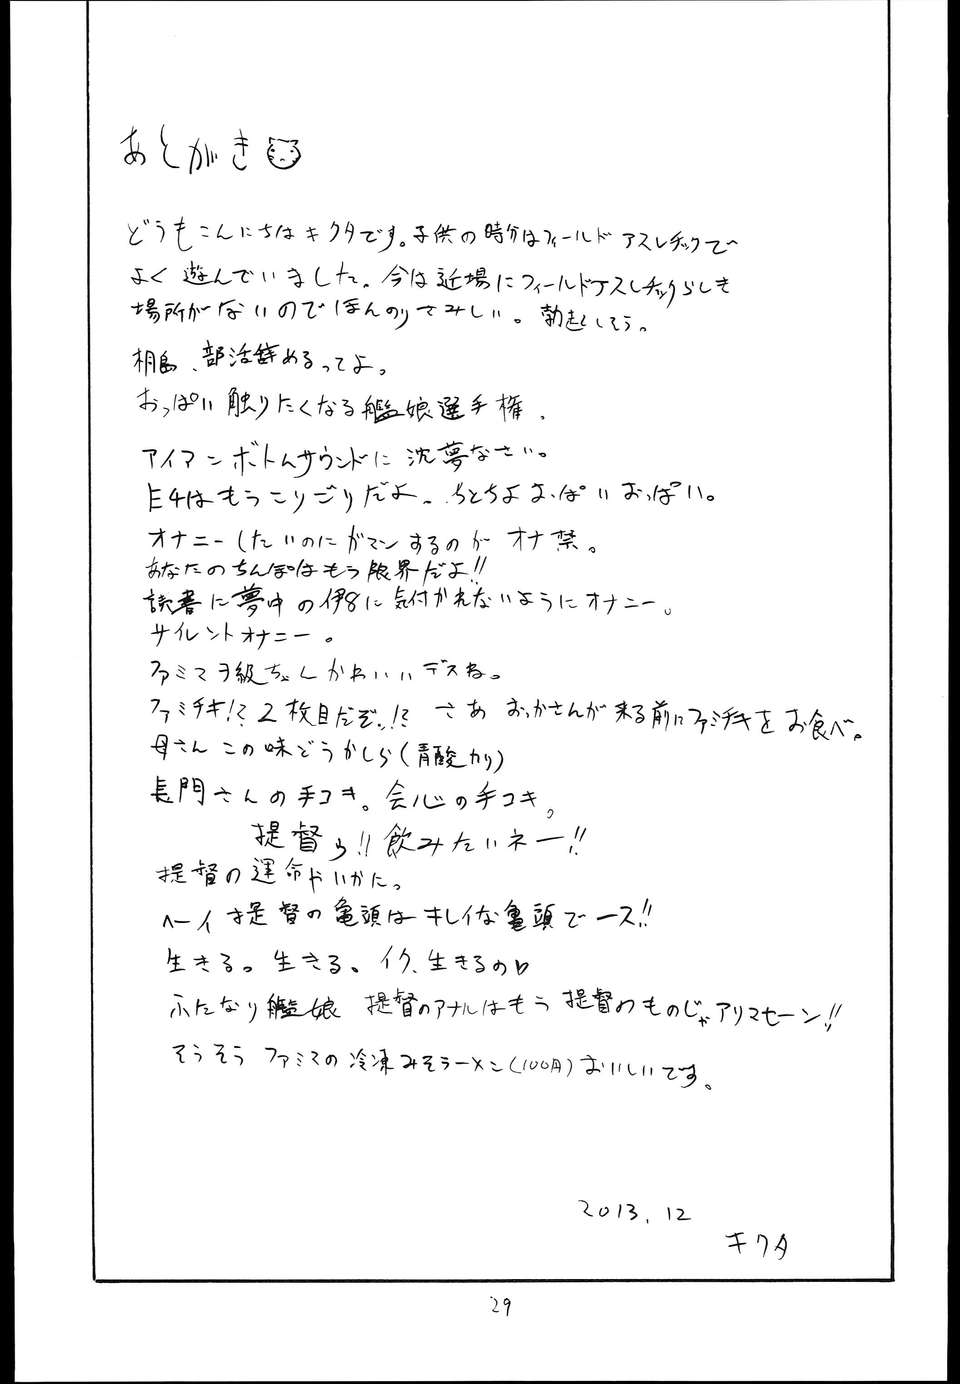 あとがき
どうもこんにちはキクタです。子供の時分はフィールドアスレチックで
よく遊んでいました。今は近場にフィールドアスレチックらしき
場所がないのでほんのりさみしい。勃起しそう。
桐島、部活辞めるってよ。
おっぱい触りたくなる艦娘選手権、
アイアンボトムサウンドに沈夢なさい。
E4はもうこりごりだよ〜ちとちよおっぱいおっぱい。
オナニーしたいのにガマンするのがオナ禁。
あなたのちんぽはもう限界だよ!!
読書に夢中の伊8に気付かれないようにオナニー。
サイレントオナニー。
ファミマヲ級ちゃんかわいいデスね。
ファミチキ!?2枚目だぞ…!? さあ おっかさんが来る前にファミチキをお食べ。
母さんこの味どうかしら(青酸カリ)
長門さんの手コキ。会心の手コキ。
提督ゥ!!飲みたいネー!!
提督の運命やいかにっ
ヘーイ提督の亀頭はキレイな亀頭でース!!
生きる。生きる。イク、生きるの♡
ふたなり艦娘 提督のアナルはもう提督のものじゃアリマセーン!!
そうそう ファミマの冷凍みそラーメン(100円)おいしいです。
2013.12
キクタ
29